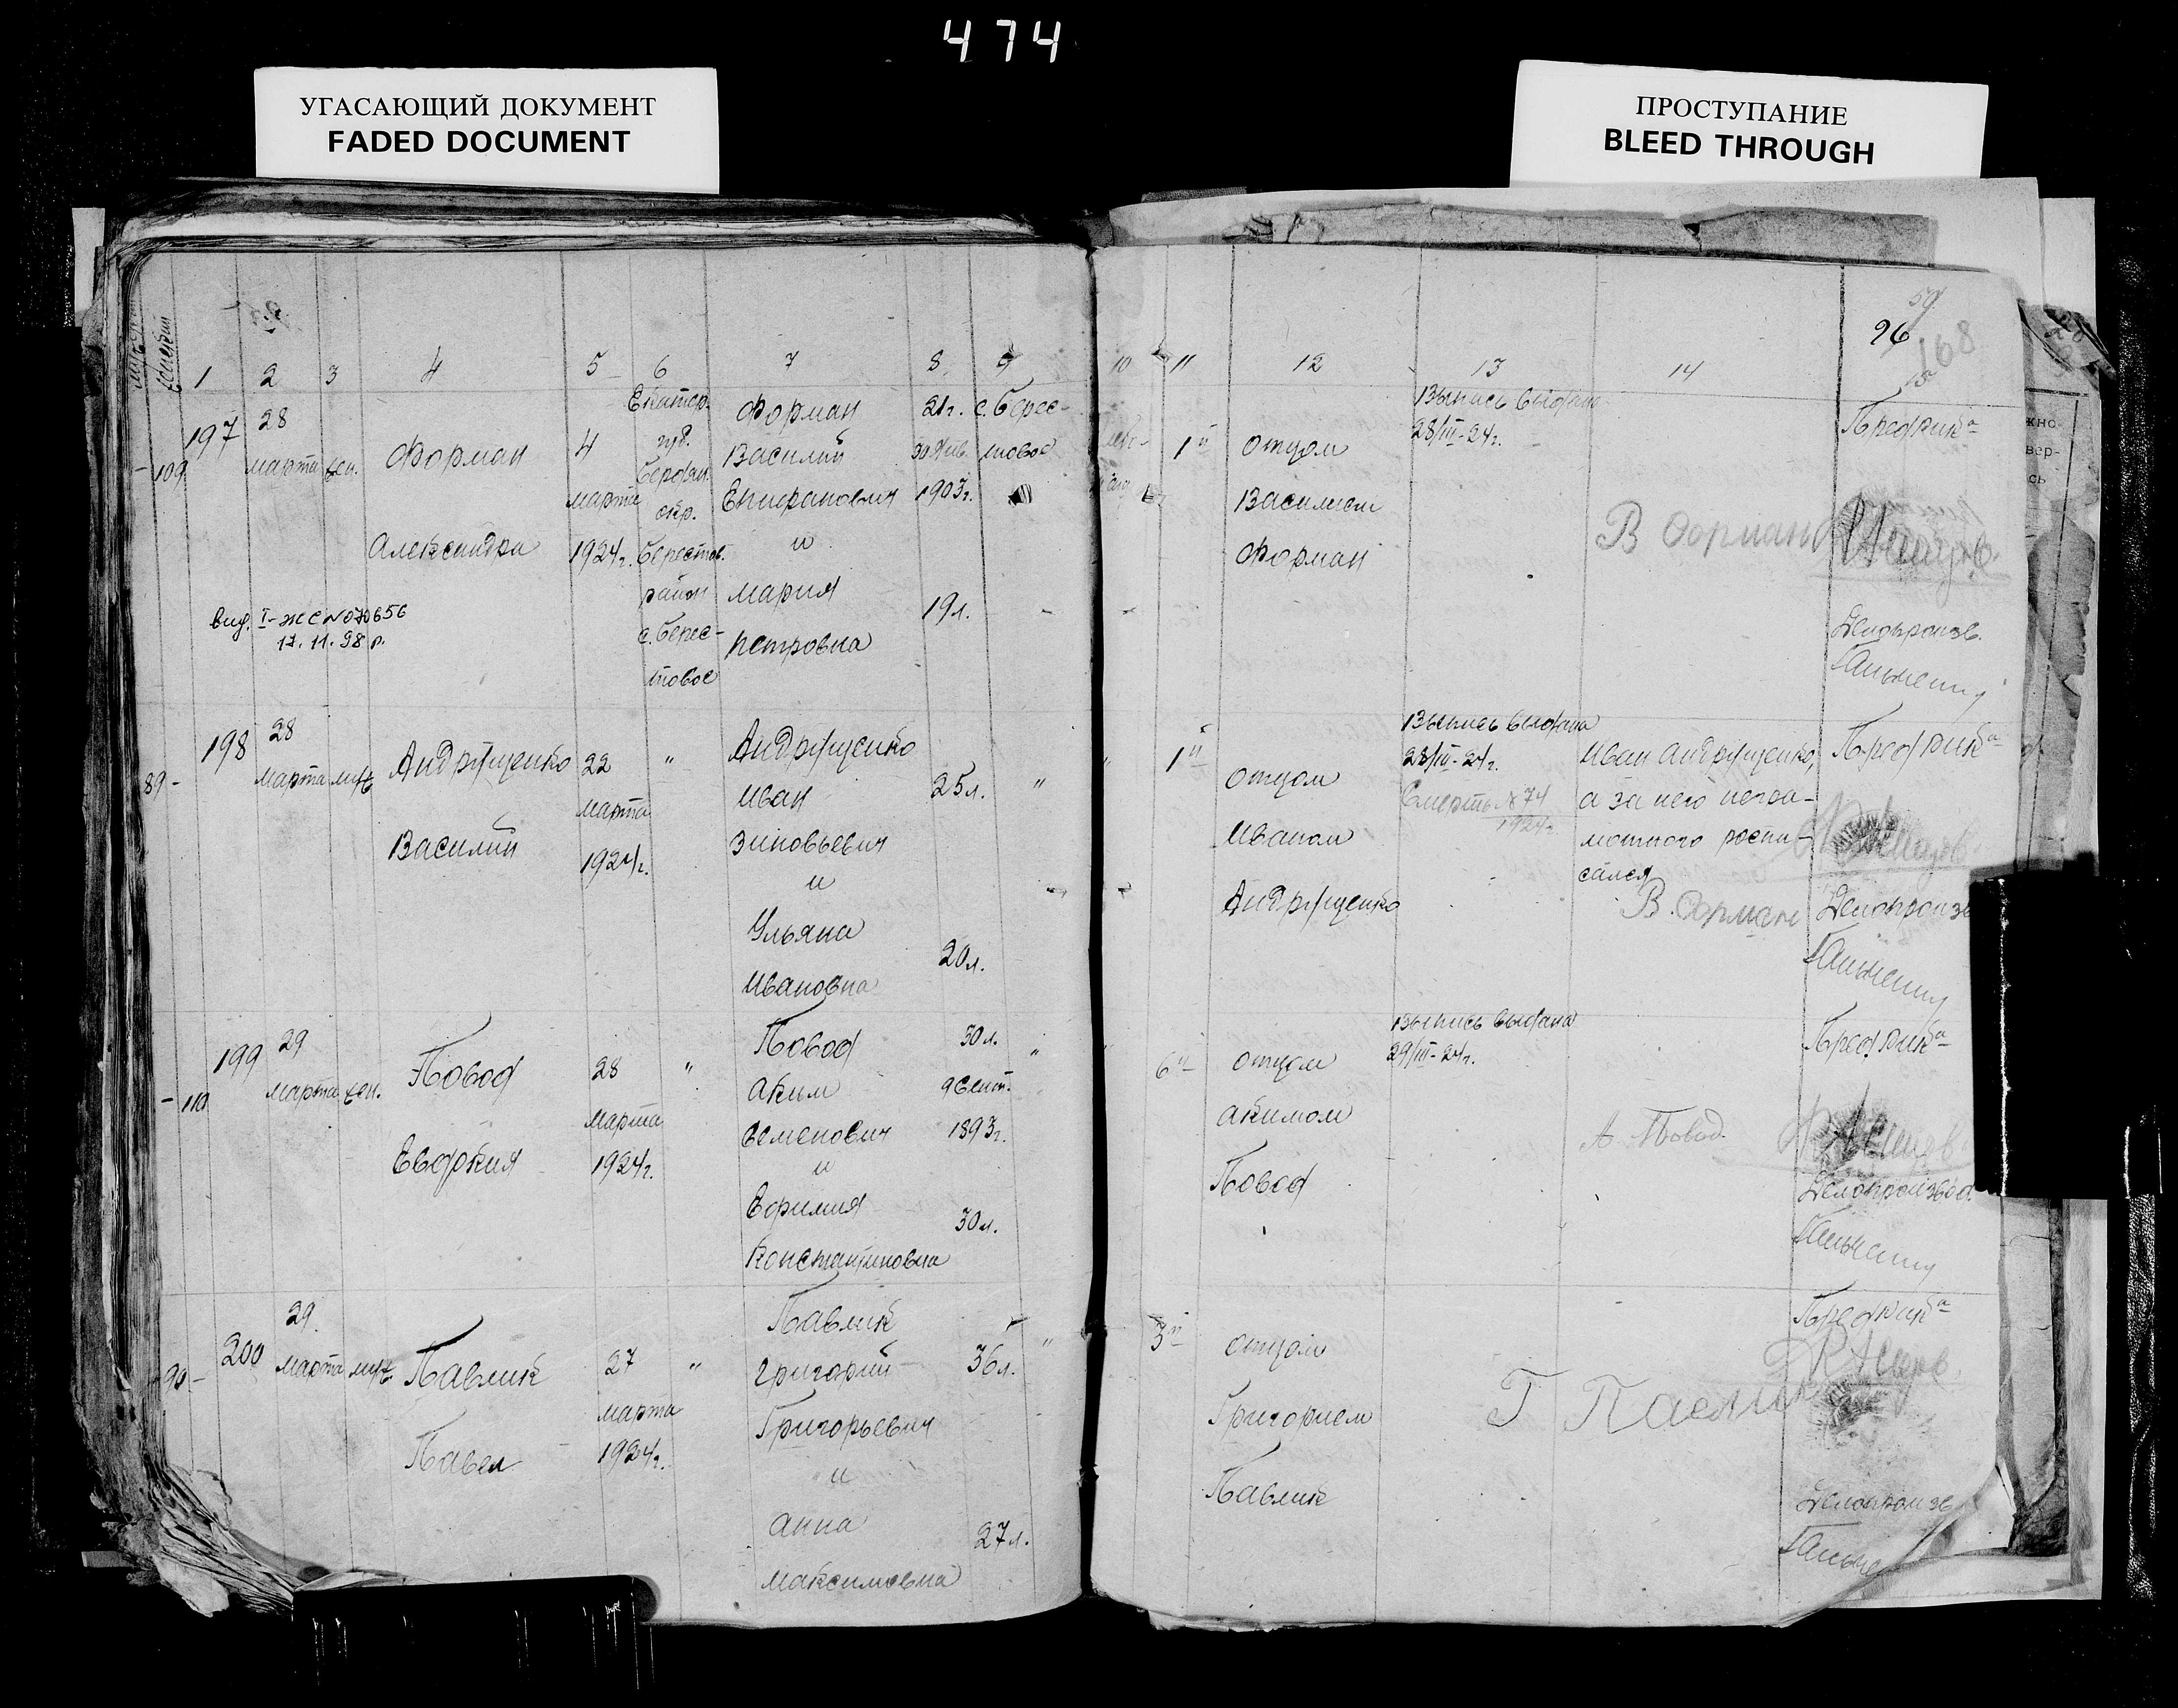 474
УГАСАЮЩИЙ ДОКУМЕНТ
FADED DOCUMENT
ПРОСТУПАНИЕ
BLEED THROUGH
96
168
1 2 3 4 5 6 7 8 9 10 11 12 13 14
197
109
28
марта
жен.
Форман
Александра
4
марта
1924г.
Екатер.
губ.
Бердян.
окр.
Берестов.
район
с. Берес-
товое
Форман
Василий
Епифанович
и
Мария
Петровна
21г.
30 Янв.
1903г.
19л.
с. Берес-
товое
1й
отцом
Василием
Форман
Выпись выдана
28/III-24г.
В Форман
Предрика
Делопроизв.
вид. I-ЖС №070656
17.11.98 р.
198
89-
28
марта
муж
Андрущенко
Василий
22
марта
1924г.
"
Андрущенко
Иван
Зиновьевич
и
Ульяна
Ивановна
25л.
20л.
"
1й
отцом
Иваном
Андрущенко
Выпись выдана
28/III-24г.
Смерть №74
1924г.
Иван Андрущенко,
а за него негра-
мотного роспи-
сался
В. Форман
Предрика
Делопроизв
199
-110
29
марта
жен.
Повод
Евдокия
28
марта
1924г.
"
Повод
Аким
Семенович
и
Ефимия
Константиновна
30л.
9 Сент.
1893г.
30л.
"
6й
отцом
Акимом
Повод
Выпись выдана
29/III-24г.
А Повод.
Предрика
Делопроизвод.
200
90-
29.
марта
муж
Павлик
Павел
27
марта
1924г.
"
Павлик
Григорий
Григорьевич
и
Анна
Максимовна
36л.
27л.
"
3й
отцом
Григорием
Павлик
Г Павлик
Предрика
Делопроизв